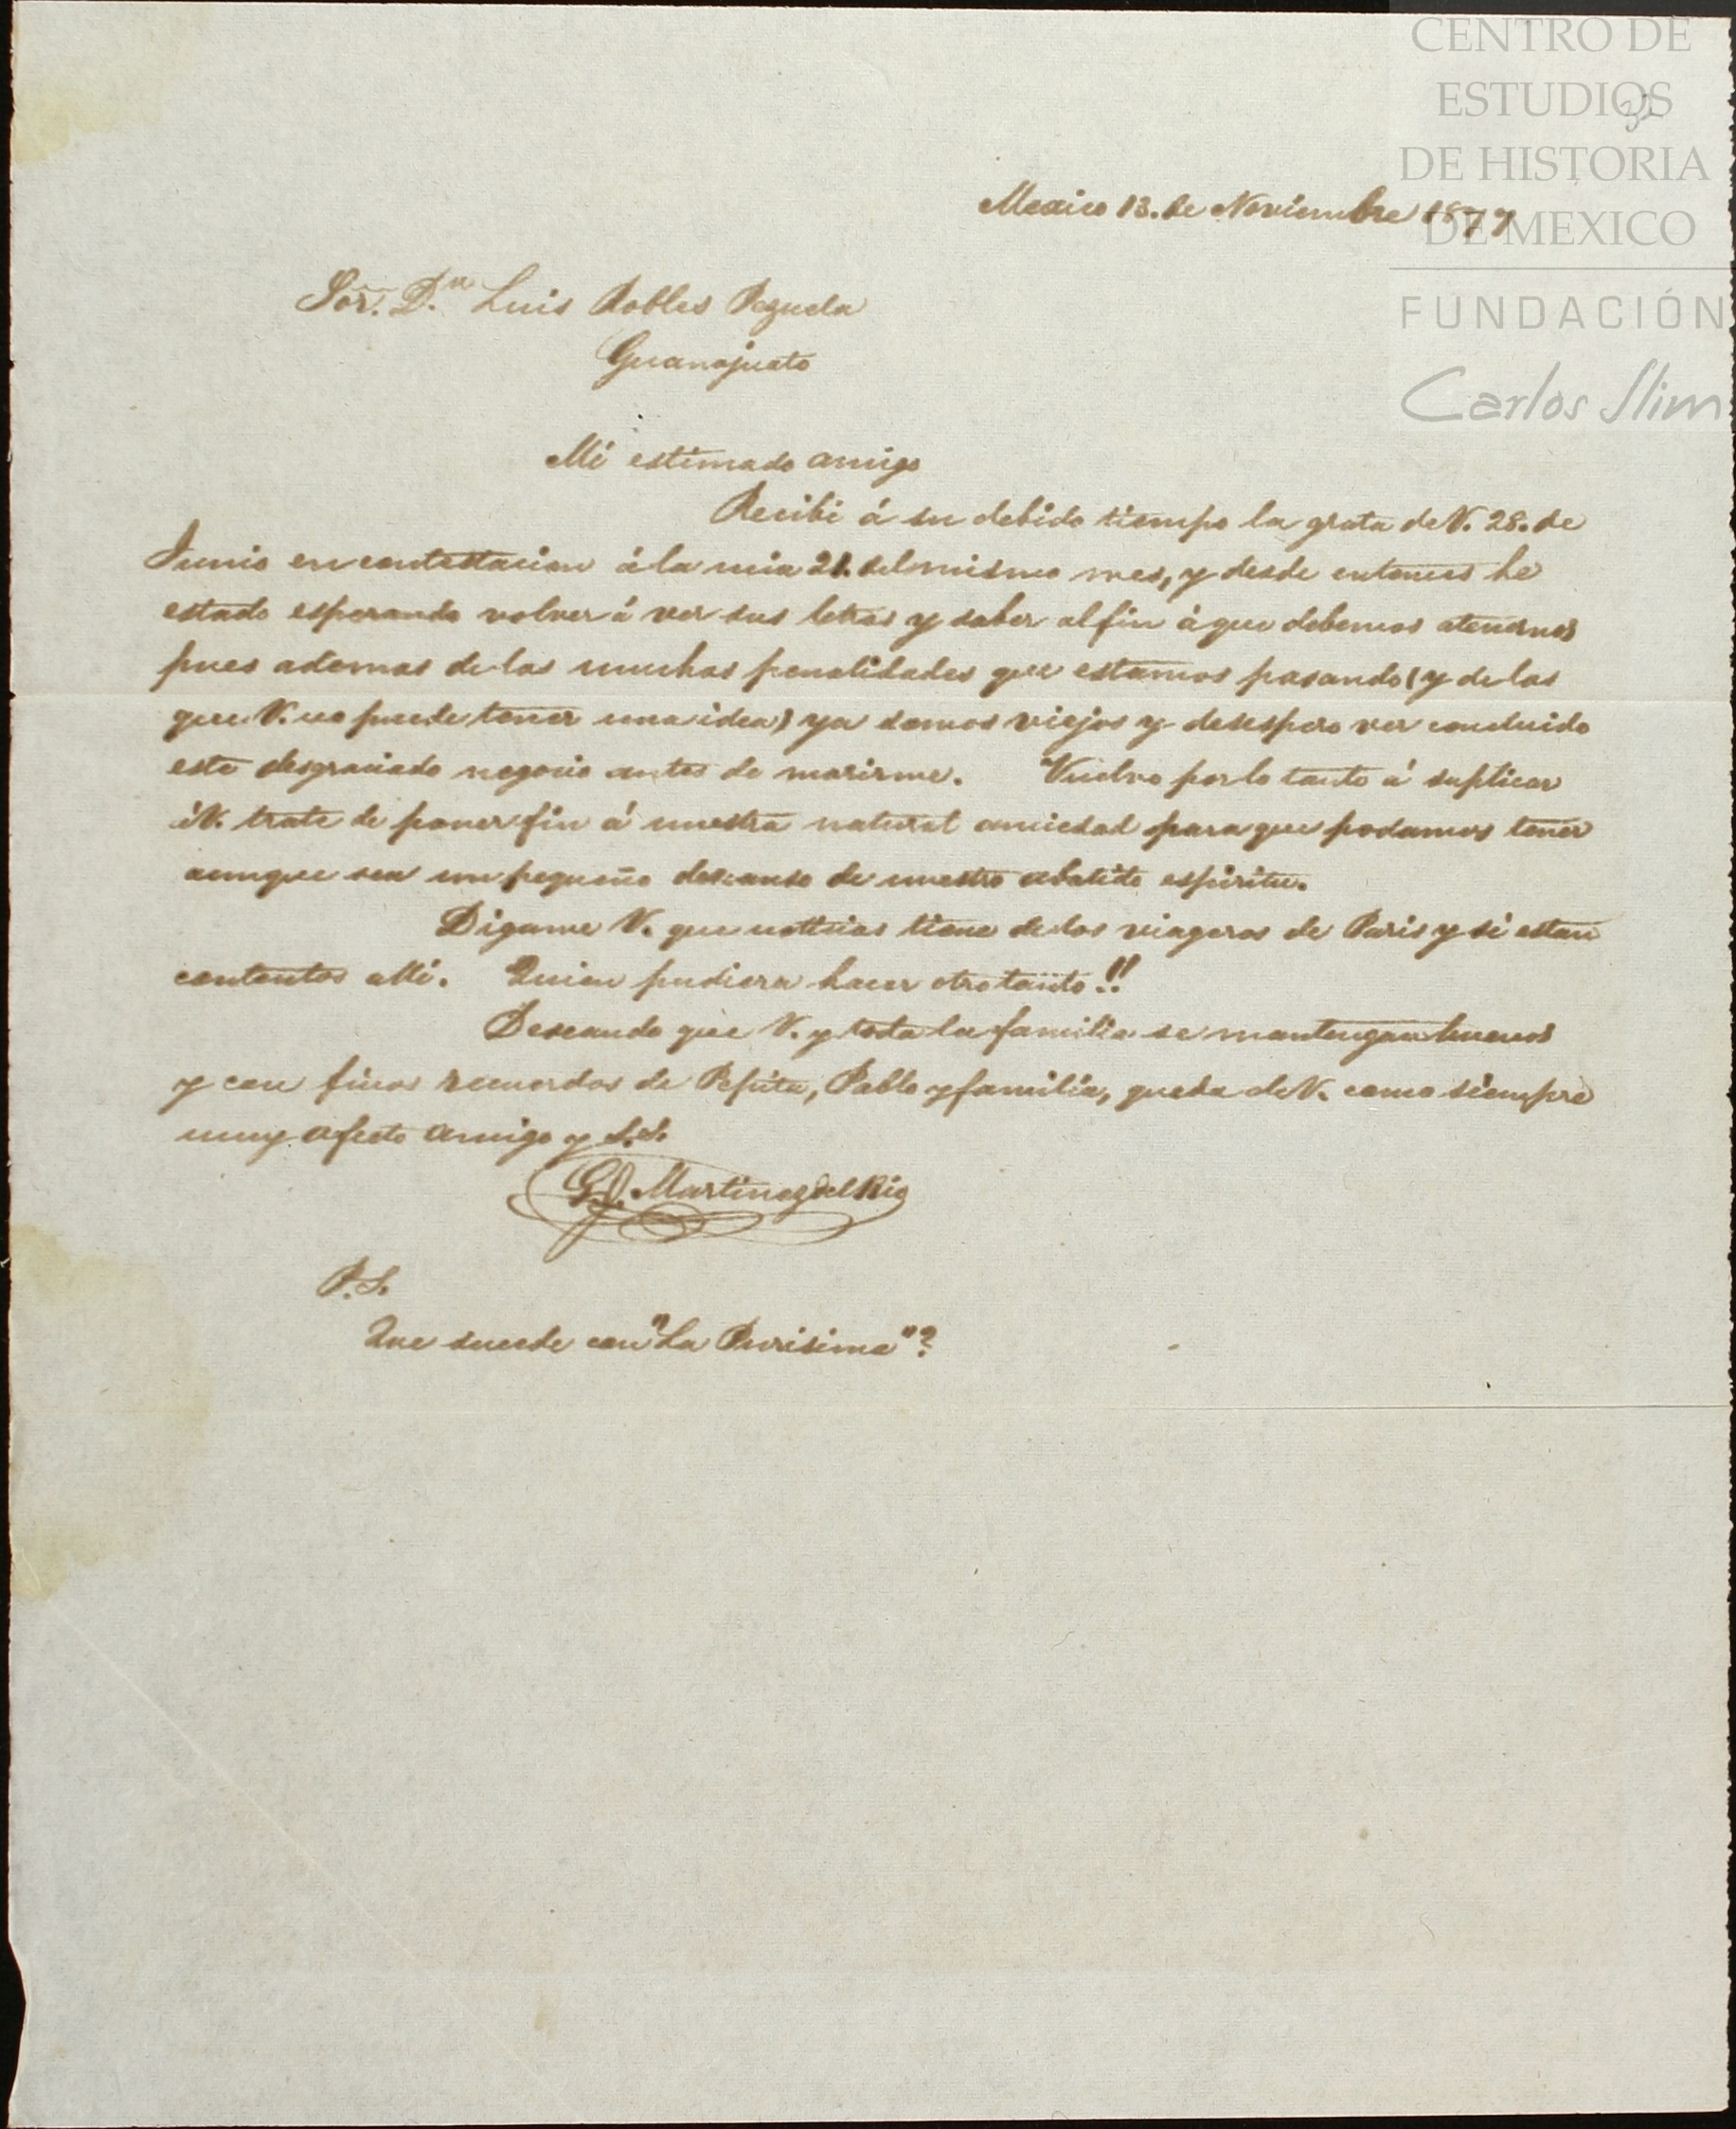 CENTRO DE
ESTUDIOS
DE HISTORIA
DE MEXICO
FUNDACIÓN
Carlos Slim
32
Mexico 13. de Noviembre 1877
Sor. D.n Luis Robles Pezuela
Guanajuato
Mi estimado amigo
Recibi á su debido tiempo la grata de V. 28. de
Junio en contestacion á la mia 21. del mismo mes, y desde entonces he
estado esperando volver á ver sus letras y saber al fin á que debemos atenernos
pues ademas de las muchas penalidades que estamos pasando (y de las
que V. no puede tener una idea) ya somos viejos y desespero ver concluido
este desgraciado negocio antes de morirme. Vuelvo por lo tanto á suplicar
á V. trate de poner fin á nuestra natural anciedad para que podamos tener
aunque sea un pequeño descanso de nuestro abatido espiritu.
Digame V. que noticias tiene de los viageros de Paris y si estan
contentos alli. Quien pudiera hacer otro tanto!!
Deseando que V. y toda la familia se mantengan buenos
y con finos recuerdos de Pepita, Pablo y familia, queda de V. como siempre
muy afecto amigo y S.S.
G. Martinez del Rio
P.S.
Que sucede con "La Purisima"?